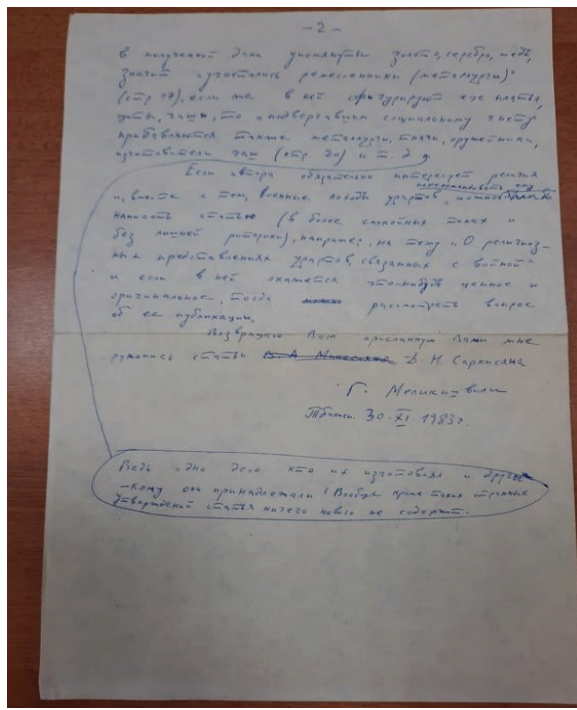 - 2 -
в полученной дани упомянуты золото, серебро, медь,
значит угнетались ремесленники (металлурги)"
(стр 18), если же в ней фигурируют еще платья,
щиты, чаши, то к подвергавшим социальному гнету
прибавляются также металлурги, ткачи, оружейники,
изготовители чаш (стр 20) и т. д.
Если автора обязательно интересует религия
и, вместе с тем, военные походы урартов, можно
порекомендовать ему
написать статью (в более спокойных тонах и
без лишней риторики), например, на тему „О религиоз-
ных представлениях урартов, связанных с войной"
и если в ней окажется что-нибудь ценное и
оригинальное, тогда рассмотреть вопрос
об ее публикации.
Возвращаю Вам присланную Вами мне
рукопись статьи Д. Н. Саркисяна
Г. Меликишвили
Тбилиси. 30.XI.1983г.
Ведь одно дело кто их изготовлял и другое
- кому они принадлежали! Вообще кроме таких странных
утверждений статья ничего нового не содержит.